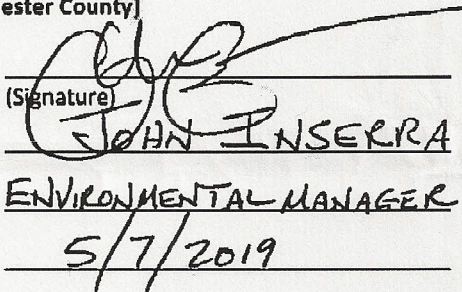 ester County]
(Signature)
JOHN INSERRA
ENVIRONMENTAL MANAGER
5/7/2019